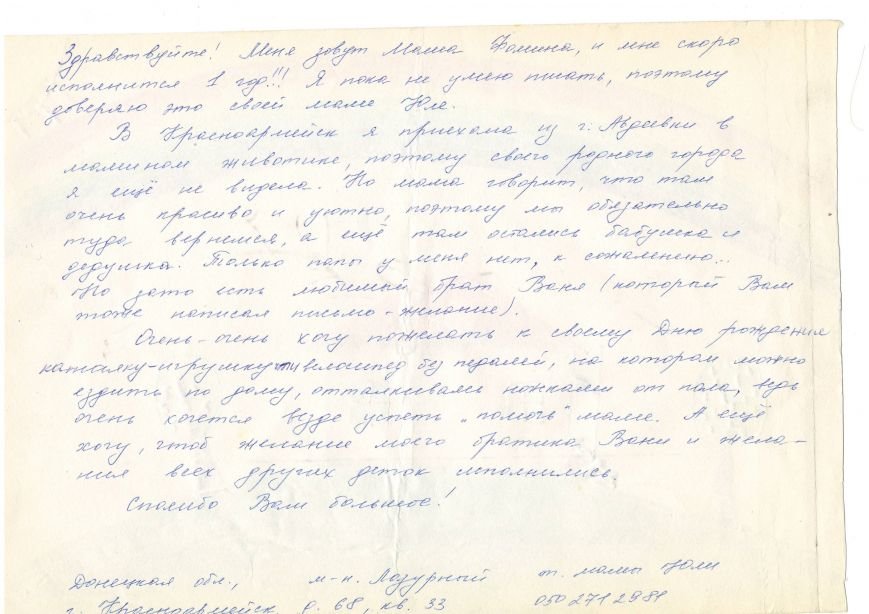 Здравствуйте! Меня зовут Маша Фомина, и мне скоро
исполнится 1 год!!! Я пока не умею писать, поэтому
доверяю это своей маме Юле.
В Красноармейск я приехала из г. Авдеевки в
мамином животике, поэтому своего родного города
я ещё не видела. Но мама говорит, что там
очень красиво и уютно, поэтому мы обязательно
туда вернемся, а ещё там остались бабушка и
дедушка. Только папы у меня нет, к сожалению...
Но зато есть любимый брат Ваня (который Вам
тоже написал письмо-желание).
Очень-очень хочу пожелать к своему Дню рождения
каталку-игрушку или велосипед без педалей, на котором можно
ездить по дому, отталкиваясь ножками от пола, ведь
очень хочется везде успеть „помочь" маме. А ещё
хочу, чтоб желание моего братика Вани и жела-
ния всех других деток исполнились.
Спасибо Вам большое!
Донецкая обл., м-н. Лазурный т. мамы Юли
г. Красноармейск д. 68, кв. 33 050 271 29 81